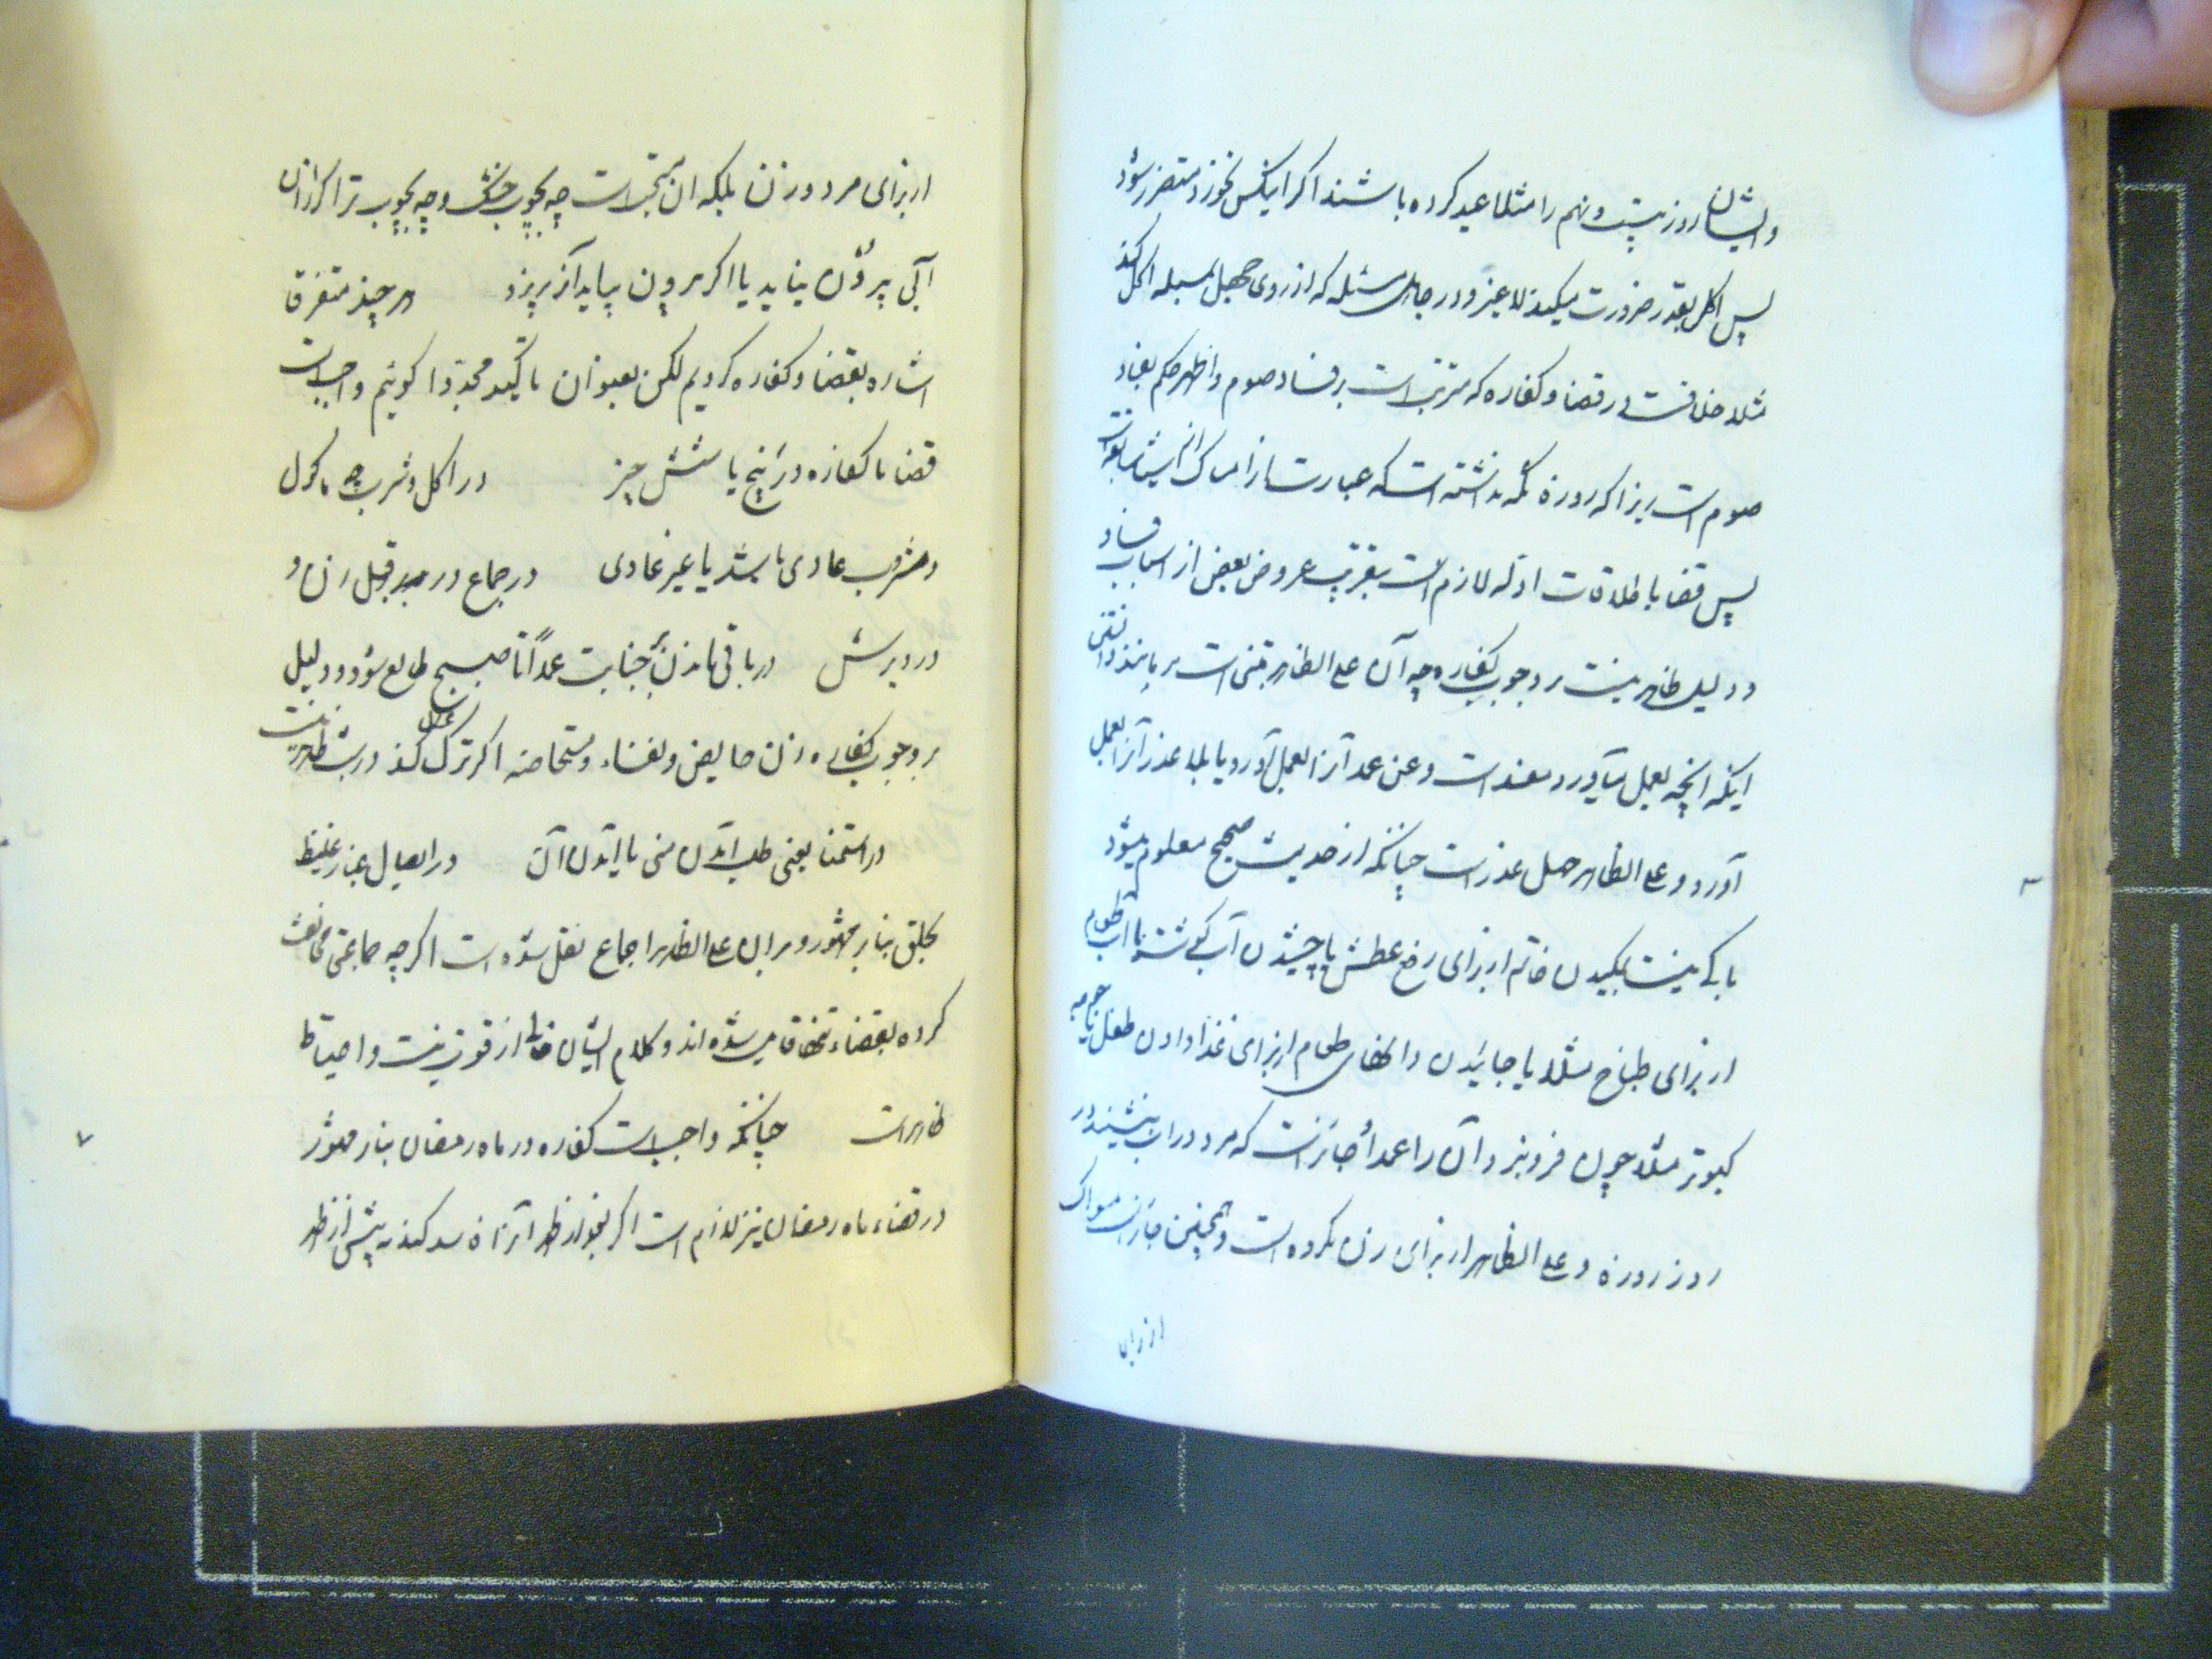 و ایشان روز بیست و نهم را مثلا عید کرده باشند اگر اینکس نخورد متضرر شود
پس اکل بقدر ضرورت میکند لا غیر و در جاهل مسئله که از روی جهل بمسئله اکل کند
مثلا خلافست در قضا و کفاره که مترتب است بر فساد صوم و اظهر حکم بفساد
صوم است زیرا که روزه نگه نداشته است که عبارت از امساک از اشیاء
پس قضا باطلاقات ادله لازم است بتقریب عروض بعض از اسباب فساد
و دلیل ظاهر نیست بر وجوب کفاره چه آن علی الظاهر مبتنی است بر دانستن
اینکه آنچه بعمل میآورد مفسد است و عن عمد آنرا بعمل آورد یا بلا عذر آنرا بعمل
آورد و علی الظاهر جهل عذر است چنانکه از حدیث صحیح معلوم میشود
باکی نیست بمکیدن خاتم از برای رفع عطش یا چشیدن آب گوشت یا آب طعام
از برای طباخ مثلا یا جائیدن طعام از برای غذا دادن طفل یا جوجه
کبوتر مثلا چون فرو نبرد آن را عمدا جائز است که مرد در آب بنشیند در
روز روزه و علی الظاهر از برای زن مکروه است و همچنین جائز است مسواک
از برای
از برای مرد و زن بلکه آن مستحب است چه بچوب خشک و چه بچوب تر اگر از آن
آبی بیرون نیاید یا اگر بیرون بیاید آنرا بریزد هر چند متفرق
اشاره بقضا و کفاره کردیم لکن بعنوان تأکید مجددا گوئیم واجب است
قضا با کفاره در پنج یا شش چیز در اکل و شرب چه ماکول
و مشروب عادی باشد یا غیر عادی در جماع در قبل زن و
در دبرش در باقی ماندن بجنابت عمدا تا صبح طالع شود و دلیل
بر وجوب کفاره زن حایض و نفساء و مستحاضه اگر ترک غسل کند در شب ظاهر نیست
در استمنا یعنی طلب آمدن منی با آمدن آن در ایصال غبار غلیظ
بحلق بنا بر مشهور و بر آن علی الظاهر اجماع نقل شده است اگرچه جماعتی مخالفت
کرده بقضاء تنها قایل شده اند و کلام ایشان خالی از قوت نیست و احتیاط
ظاهر است چنانکه واجب است کفاره در ماه رمضان بنا بر مشهور
در قضاء ماه رمضان نیز لازم است اگر بعد از ظهر آنرا فاسد کند نه پیش از ظهر